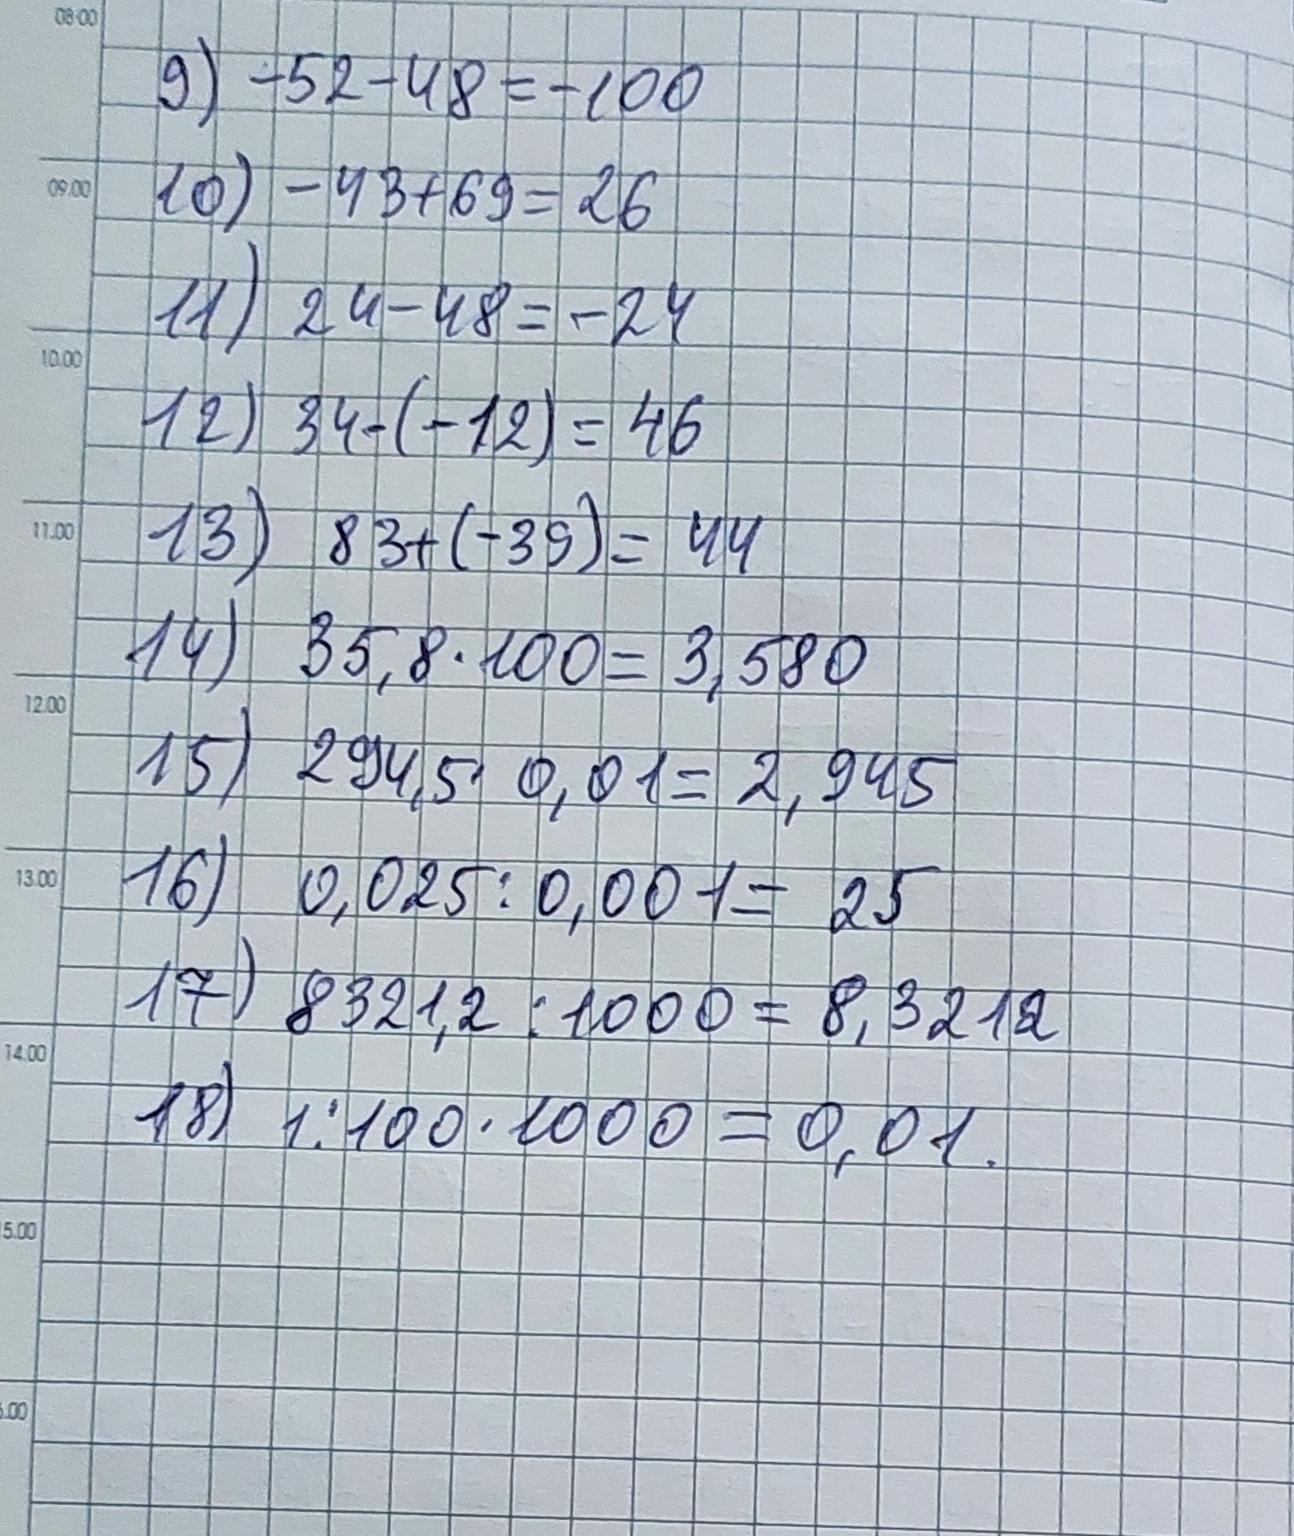 08.00
9) -52-48=-100
09.00
10) -43+69=26
11) 24-48=-24
10.00
12) 34-(-12)=46
11.00
13) 83+(-39)=44
14) 35,8·100=3,580
12.00
15) 294,5· 0,01=2,945
13.00
16) 0,025:0,001= 25
17) 8321,2 :1000=8,3212
14.00
18) 1:100·1000=0,01.
15.00
6.00